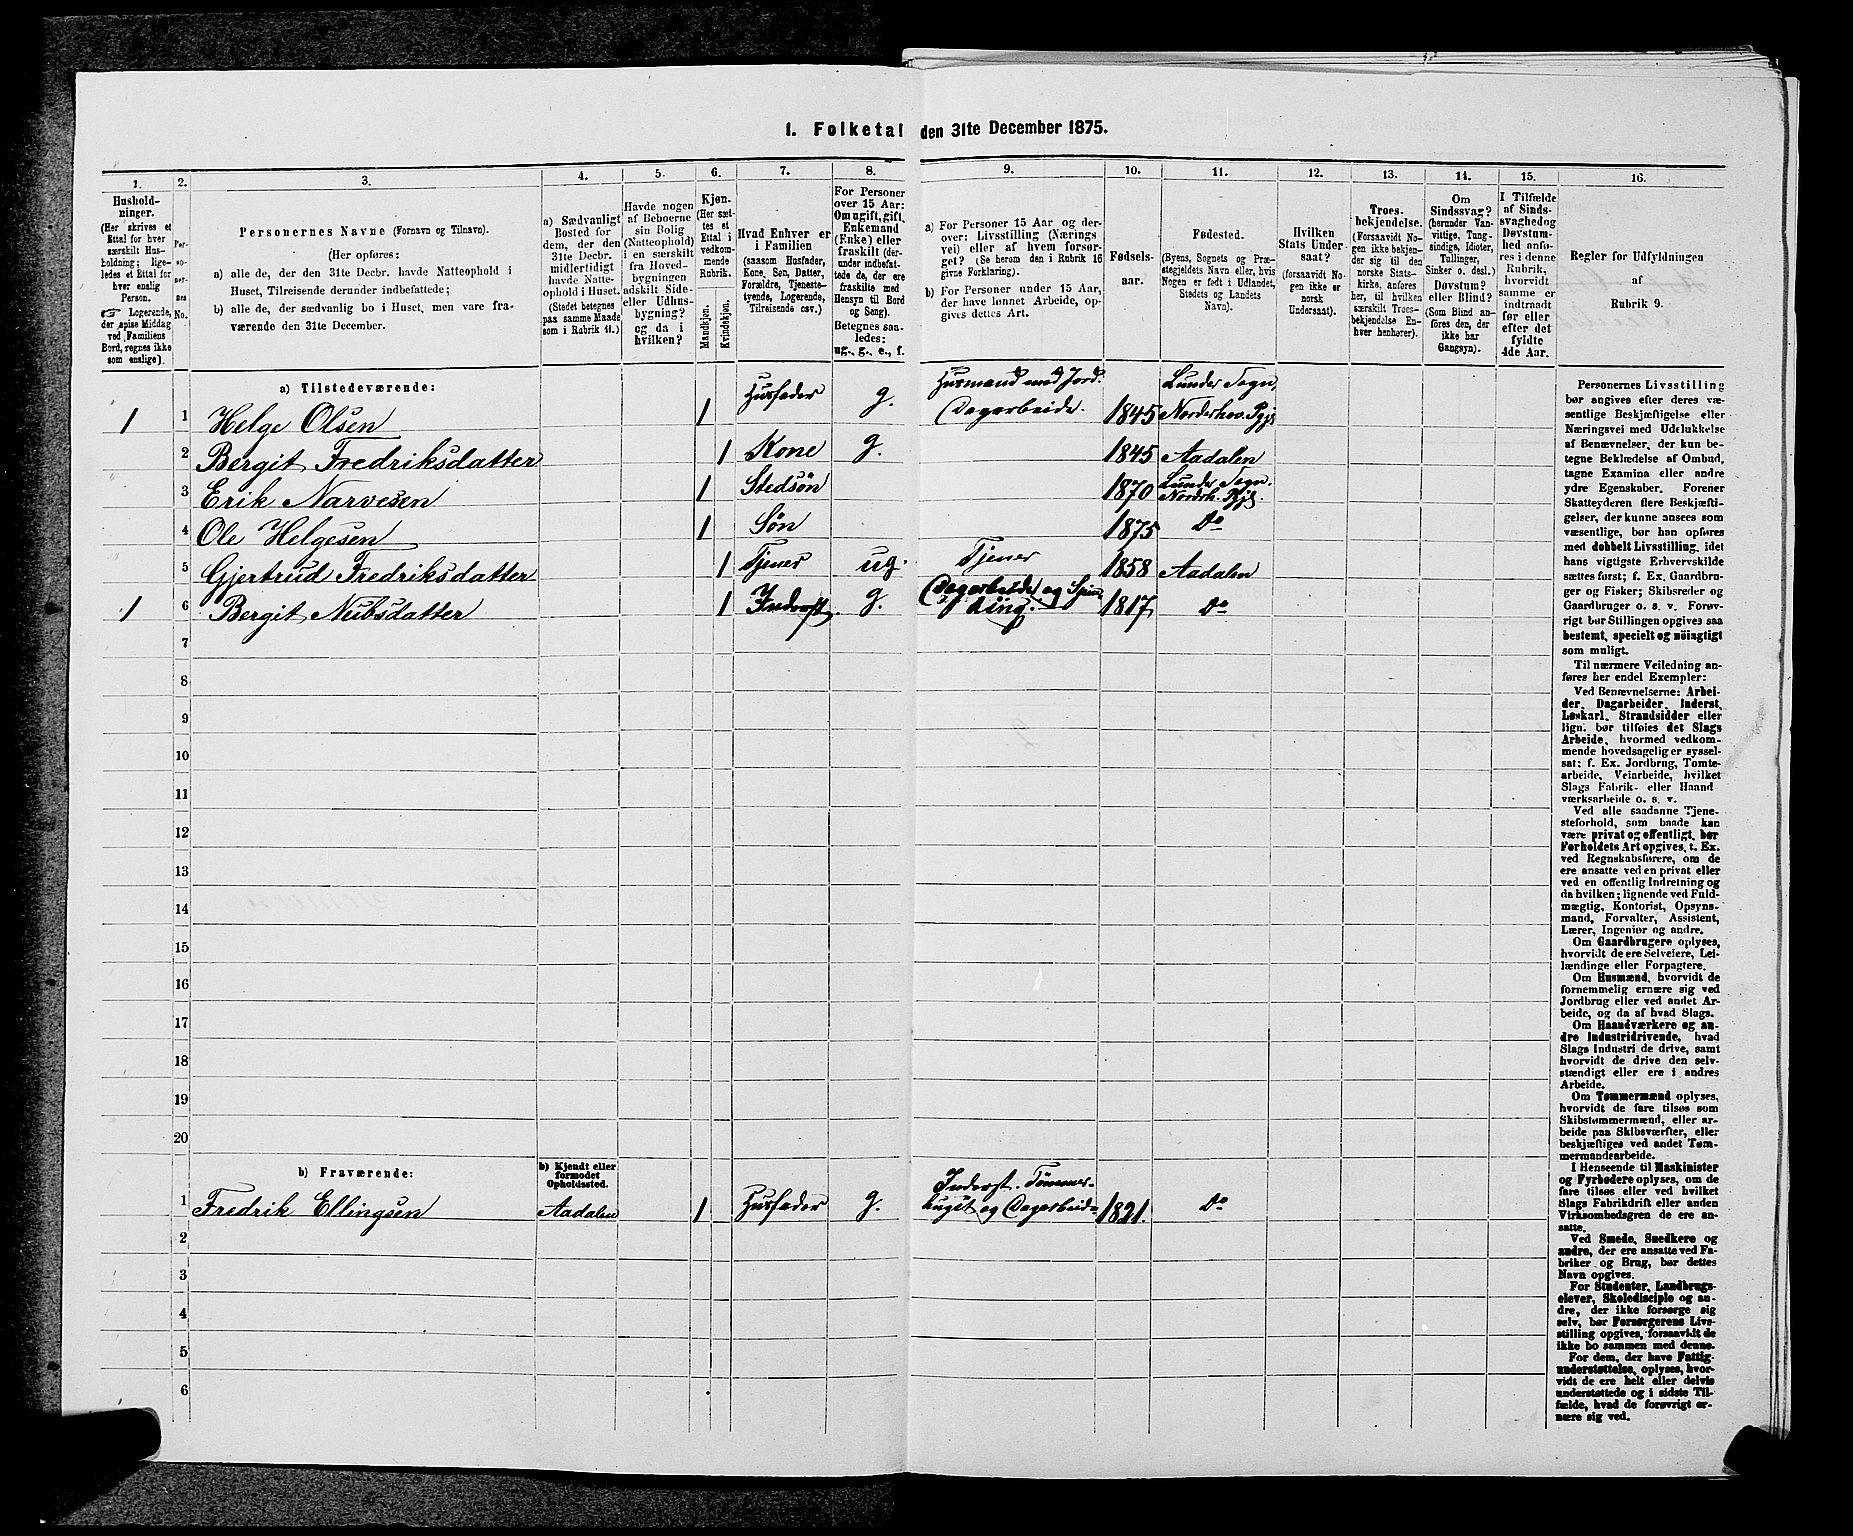 1. Folketal den 31te December 1875.
1.
Hushold-
ninger.
(Her skrives et
Ettal for hver
særskilt Hus-
holdning; lige-
ledes et Ettal for
hver enslig
Person.
☞ Logerende,
der spise Middag
ved Familiens
Bord, regnes ikke
som enslige).
2.
Per-
so-
ner-
nes
No.
3.
Personernes Navne (Fornavn og Tilnavn).
(Her opføres:
a) alle de, der den 31te Decbr. havde Natteophold i
Huset, Tilreisende derunder indbefattede;
b) alle de, der sædvanlig bo i Huset, men vare fra-
værende den 31te December.
4.
a) Sædvanligt
Bosted for
dem, der den
31te Decbr.
midlertidigt
havde Natte-
ophold i Huset.
(Stedet betegnes
paa samme Maade
som i Rubrik 11.)
5.
Havde nogen
af Beboerne
sin Bolig
(Natteophold)
i en særskilt
fra Hoved-
bygningen
adskilt Side-
eller Udhus-
bygning?
og da i
hvilken?
6.
Kjøn.
(Her sæt-
tes et
Ettal i
vedkom-
mende
Rubrik.
Mandkjøn.
Kvindekjøn.
7.
Hvad Enhver er
i Familien
(saasom Husfader,
Kone, Søn, Datter,
Forældre, Tjeneste-
tyende, Logerende,
Tilreisende osv.)
8.
For Personer
over 15 Aar:
Om ugift, gift,
Enkemand
(Enke) eller
fraskilt (der-
under indbefat-
tede de, der ere
fraskilte med
Hensyn til Bord
og Seng).
Betegnes saa-
ledes:
ug., g., e., f.
9.
a) For Personer 15 Aar og der-
over: Livsstilling (Nærings
vei) eller af hvem forsør-
get? (Se herom den i Rubrik 16
givne Forklaring).
b) For Personer under 15 Aar,
der have lønnet Arbeide, op-
gives dettes Art.
10.
Fødsels-
aar.
11.
Fødested.
(Byens, Sognets og Præ-
stegjeldets Navn eller, hvis
Nogen er født i Udlandet,
Stedets og Landets
Navn).
12.
Hvilken
Stats Under-
saat?
(forsaavidt No-
gen ikke er
norsk
Undersaat).
13.
Troes-
bekjendelse.
(Forsaavidt No-
gen ikke bekjen-
der sig til den
norske Stats-
kirke, anføres
her, til hvilken
særskilt Troes-
bekjendelse En-
hver henhører).
14.
Om
Sindssvag?
(herunder Van-
vittige, Tung-
sindige, Idioter,
Tullinger,
Sinker o. desl.)
Døvstum?
eller Blind?
(Som Blind an-
føres den, der
ikke har
Gangsyn).
15.
I Tilfælde
af Sinds-
svaghed og
Døvstum-
hed anfø-
res i denne
Rubrik,
hvorvidt
samme er
indtraadt
før eller
efter det
fyldte
4de Aar.
16.
Regler for Udfyldningen
af
Rubrik 9.
a) Tilstedeværende:
1 1 Helge Olsen 1 Husfader g. Husmand med Jord. Dagarbeide. 1845 Lunder Sogn, Norderhov. Pgjl
2 Bergit Fredriksdatter 1 Kone g. 1845 Aadalen
3 Erik Narvesen 1 Stedsøn 1870 Lunder Sogn. Nordrh. Pgjl.
4 Ole Helgesen 1 Søn 1875 Do
5 Gjertrud Fredriksdatter 1 Tjener ug. Tjener 1858 Aadalen
1 6 Bergit Nubsdatter 1 Inderst. g. Dagarbeide og Spin- ding. 1817 Do
7
8
9
10
11
12
13
14
15
16
17
18
19
20
b) Fraværende:
b) Kjendt eller
formodet
Opholdssted.
1 Fredrik Ellingsen Aadalen 1 Husfader g. Inderst. Tømmer- huget og Dagarbeide 1821. Do
2
3
4
5
6
Personernes Livsstilling
bør angives efter deres væ-
sentlige Beskjæftigelse eller
Næringsvei med Udelukkelse
af Benævnelser, der kun be-
tegne Beklædelse af Ombud,
tagne Examina eller andre
ydre Egenskaber. Forener
Skatteyderen flere Beskjæfti-
gelser, der kunne ansees som
væsentlige, bør han opføres
med dobbelt Livsstilling, idet
hans vigtigste Erhvervskilde
sættes først; f. Ex. Gaardbru-
ger og Fisker; Skibsreder og
Gaardbruger o. s. v. Forøv-
rigt bør Stillingen opgives saa
bestemt, specielt og nöiagtigt
som muligt.
Til nærmere Veiledning an-
føres her endel Exempler:
Ved Benævnelserne: Arbei-
der, Dagarbeider, Inderst,
Løskarl, Strandsidder eller
lign. bør tilføies det Slags
Arbeide, hvormed vedkom-
mende hovedsagelig er syssel-
sat; f. Ex. Jordbrug, Tomte-
arbeide, Veiarbeide, hvilket
Slags Fabrik- eller Haand
værksarbeide o. s. v.
Ved alle saadanne Tjene-
steforhold, som baade kan
være privat og offentligt, bør
Forholdets Art opgives, t. Ex.
ved Regnskabsførere, om de
ere ansatte ved en privat eller
ved en offentlig Indretning og
da hvilken; lignende ved Fuld-
mægtig, Kontorist, Opsyns-
mand, Forvalter, Assistent,
Lærer, Ingeniør og andre.
Om Gaardbrugere oplyses,
hvorvidt de ere Selveiere, Lei-
lændinge eller Forpagtere.
Om Husmænd, hvorvidt de
fornemmelig ernære sig ved
Jordbrug eller ved andet Ar-
beide, og da af hvad Slags.
Om Haandværkere og an-
dre Industridrivende, hvad
Slags Industri de drive, samt
hvorvidt de drive den selv-
stændigt eller ere i andres
Arbeide.
Om Tømmermænd oplyses,
hvorvidt de fare tilsøs som
Skibstømmermænd, eller ar-
beide paa Skibsværfter, eller
beskjæftiges ved andet Tøm-
mermandsarbeide.
I Henseende til Maskinister
og Fyrbødere oplyses, om de
fare tilsøs eller ved hvilket
Slags Fabrikdrift eller anden
Virksomhedsgren de ere an-
satte.
Ved Smede, Snedkere og
andre, der ere ansatte ved Fa-
briker og Brug, bør dettes
Navn opgives.
For Studenter, Landbrugs-
elever, Skoledisciple og an-
dre, der ikke forsørge sig
selv, bør Forsørgerens Livs-
stilling opgives, forsaavidt de
ikke bo sammen med denne.
For dem, der have Fattig-
understøttelse, oplyses, hvor-
vidt de ere helt eller delvis
understøttede og i sidste Til-
fælde, hvad de forøvrigt er-
nære sig ved.